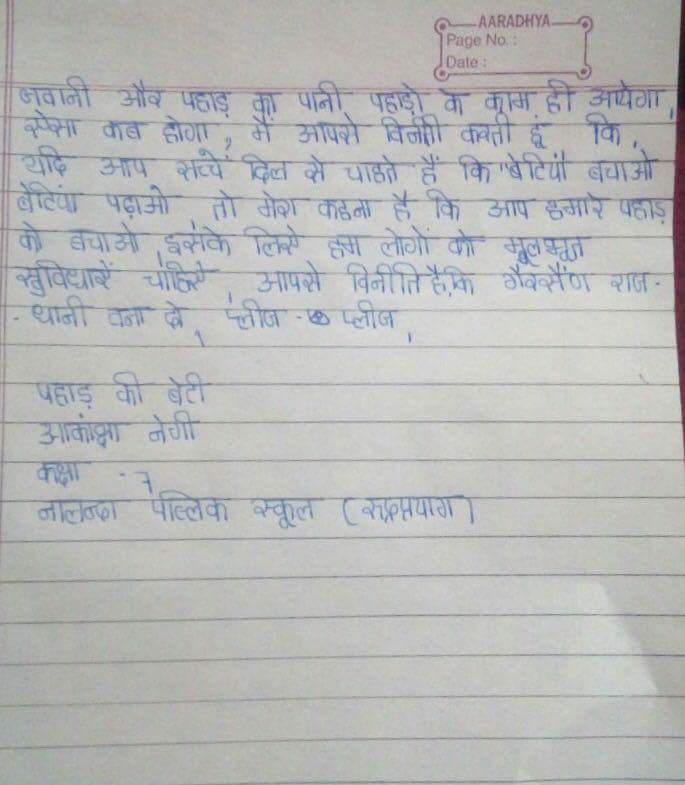 AARADHYA
Page No. :
Date :
जवानी और पहाड़ का पानी पहाड़ो के काम ही आयेगा,
ऐसा कब होगा, मैं आपसे विनती करती हूं कि,
यदि आप सच्चे दिल से चाहते हैं कि "बेटियाँ बचाओ
बेटियां पढ़ाओ तो मेरा कहना है कि आप हमारे पहाड़
को बचाओ, इसके लिये हम लोगों को मूलभूत
सुविधायें चाहिये, आपसे विनीति है,कि गैरसैंण राज-
- धानी बना दो, प्लीज - प्लीज,
पहाड़ की बेटी
आकांक्षा नेगी
कक्षा - 7
नालन्दा पब्लिक स्कूल (रुद्रप्रयाग)